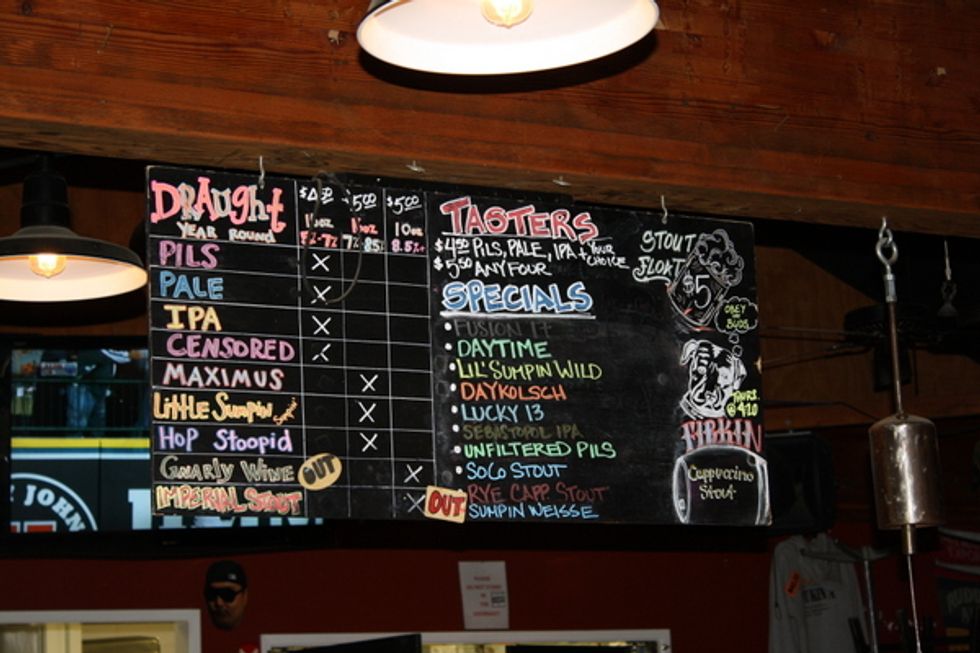 DRAUGHT
YEAR ROUND
$4.00 5.00 $5.00
16oz 16oz 10oz
5%-7% 7%-8.5% 8.5%+
PILS
PALE
IPA
CENSORED
MAXIMUS
LITTLE SUMPIN
HOP STOOPID
GNARLY WINE OUT
IMPERIAL STOUT
X
X
X
X
X
X
X
X
X
TASTERS
$4.50 PILS, PALE, IPA + YOUR CHOICE
$5.50 ANY FOUR
SPECIALS
• FUSION 17
• DAYTIME
• LIL' SUMPIN WILD
• DAYKOLSCH
• LUCKY 13
• SEBASTOPOL IPA
• UNFILTERED PILS
• SOCO STOUT
OUT RYE CAPP STOUT
SUMPIN WEISSE
STOUT
FLOAT
$5
OBEY
BUDS
TOURS
@ 420
FIRKIN
Cappuccino
Stout
JOHN